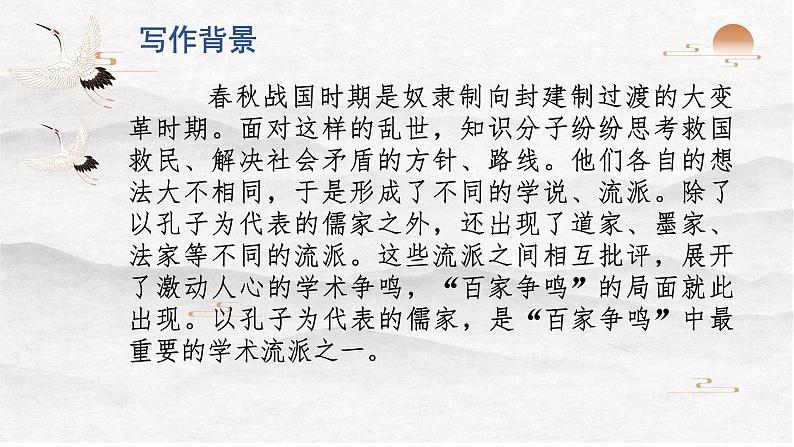 写作背景
春秋战国时期是奴隶制向封建制过渡的大变
革时期。面对这样的乱世，知识分子纷纷思考救国
救民、解决社会矛盾的方针、路线。他们各自的想
法大不相同，于是形成了不同的学说、流派。除了
以孔子为代表的儒家之外，还出现了道家、墨家、
法家等不同的流派。这些流派之间相互批评，展开
了激动人心的学术争鸣，“百家争鸣”的局面就此
出现。以孔子为代表的儒家，是“百家争鸣”中最
重要的学术流派之一。